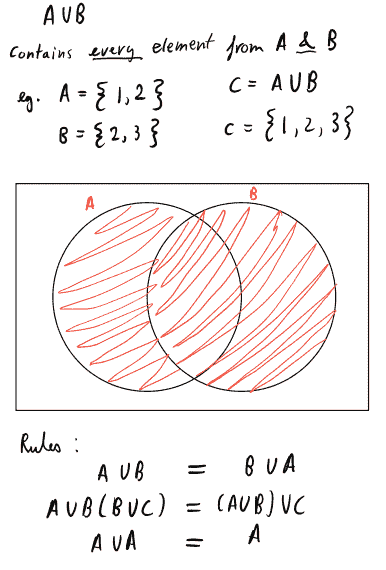 A ∪ B
Contains every element from A & B
eg. A = {1, 2} C = A ∪ B
B = {2, 3} C = {1, 2, 3}
A B
Rules :
A ∪ B = B ∪ A
A ∪ B (B ∪ C) = (A ∪ B) ∪ C
A ∪ A = A